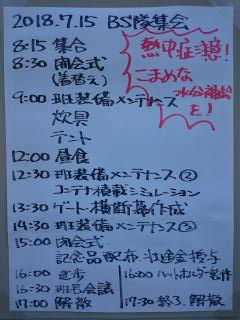 2018.7.15 BS隊集会
熱中症注意!
こまめな
水分補給
を!
8:15 集合
8:30 開会式
(着替え)
9:00 班装備メンテナンス
炊具
テント
12:00 昼食
12:30 班装備メンテナンス②
コンテナ積載シミュレーション
13:30 ゲート・横断幕作成
14:30 班装備メンテナンス③
15:00 閉会式
記念品配布・授与
16:00 進歩
16:00 ハットホルダー製作
16:30 班長会議
17:00 解散
17:30 終了、解散